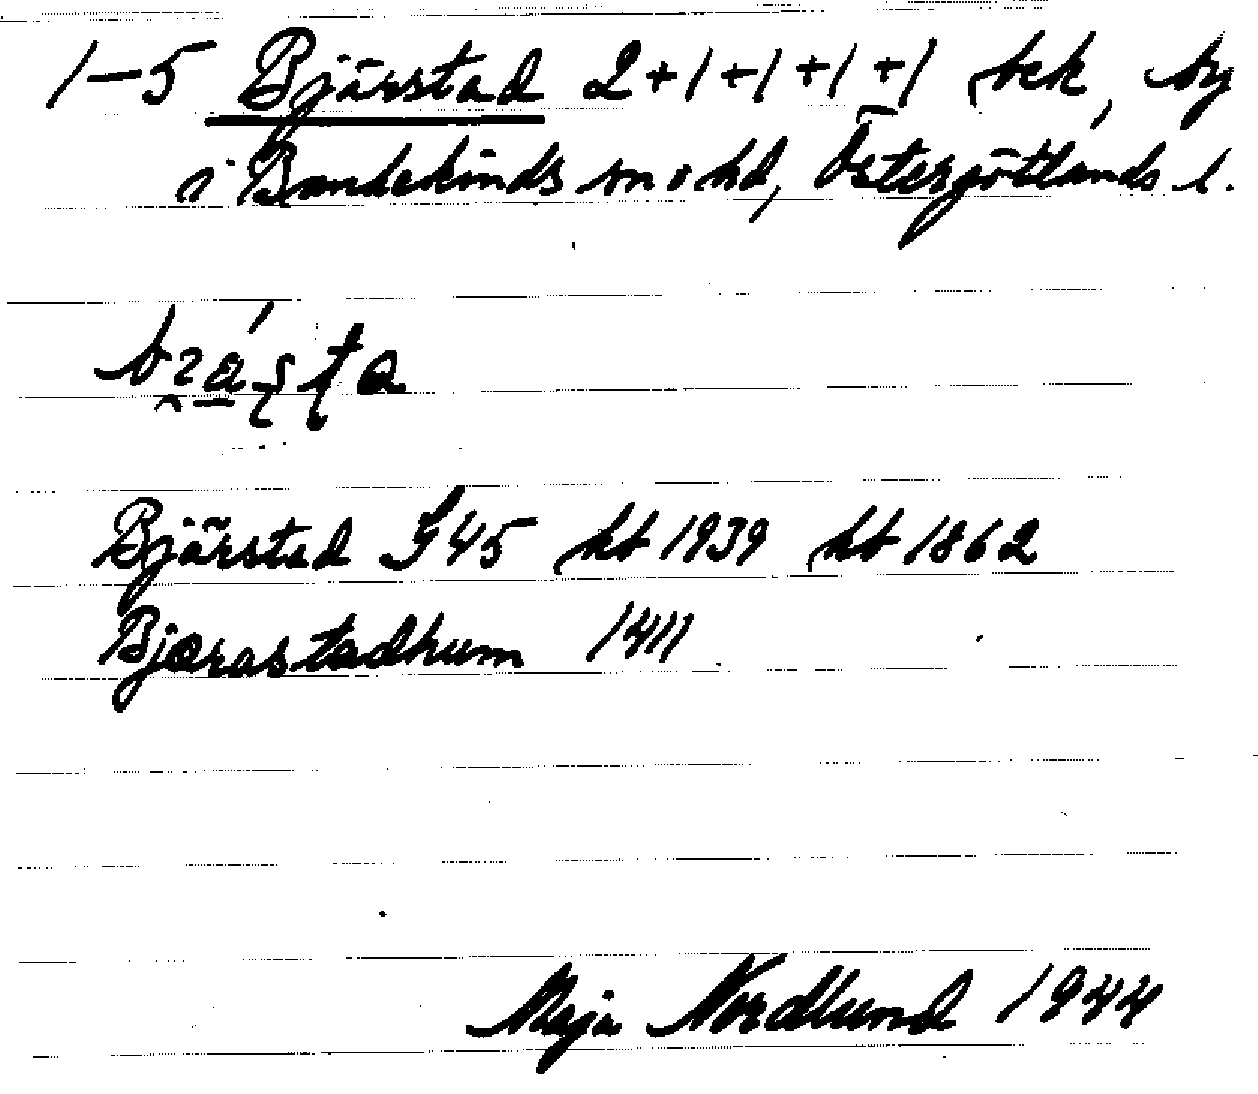 1–5 Bjärstad 2+1+1+1+1 bek, by
i Bankekinds sn o hd, Östergötlands l.
Bjärstad J45 hb 1939 hb 1862
Bjærastadhum 1411
Maja Nordlund 1944